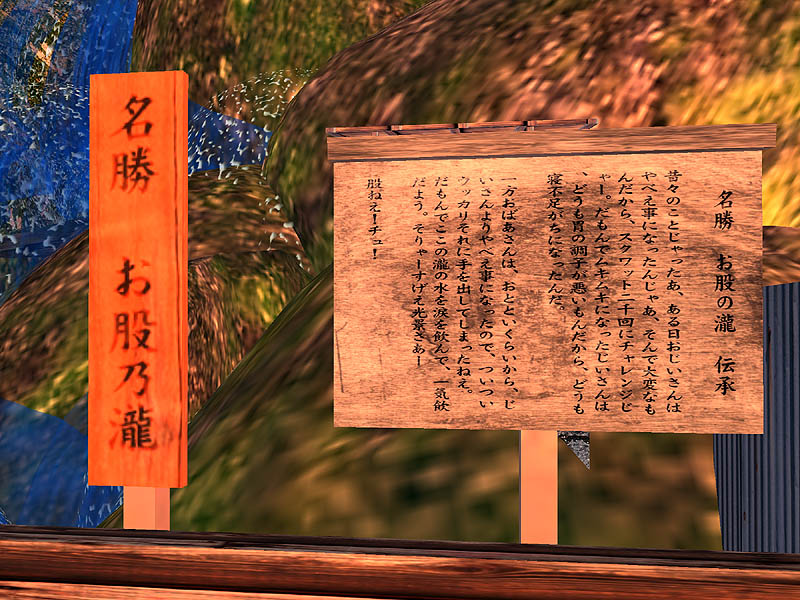 名勝 お股乃瀧
名勝 お股の瀧 伝承
昔々のことじゃったあ、ある日おじいさんは
やべえ事になったんじゃあ、そんで大変なも
んだから、スクワット二千回にチャレンジじ
ゃー。だもんでムキムキになったじいさんは
、どうも胃の調子が悪いもんだから、どうも
寝不足がちになったんだ。
一方おばあさんは、おとといぐらいから、じ
いさんよりやべえ事になったので、ついつい
ウッカリそれに手を出してしまったねえ。
だもんでここの瀧の水を涙を飲んで、一気飲
だよう。そりゃーすげえ光景さあー
股ねえーチュ！